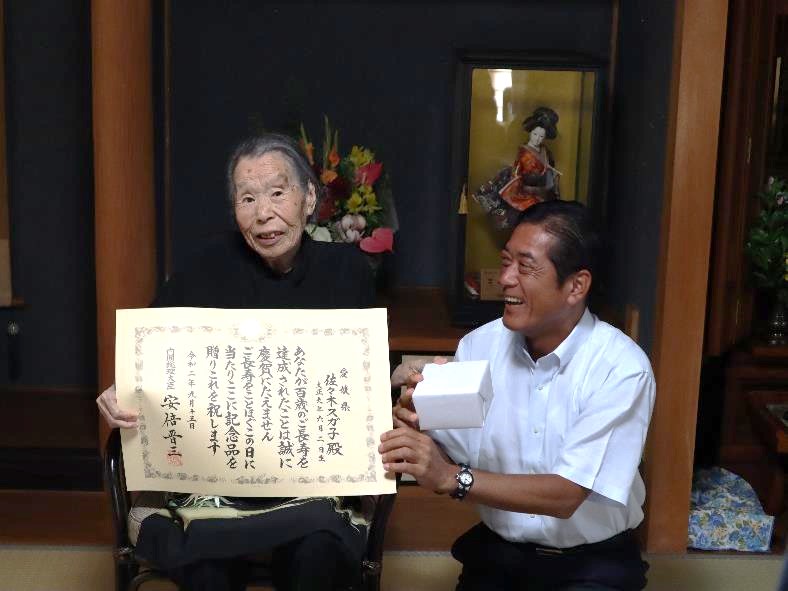 愛媛県
佐々木スガ子殿
大正九年六月二日生
あなたが百歳のご長寿を
達成されたことは誠に
慶賀にたえません
ご長寿をことほぐこの日に
当たりここに記念品を
贈りこれを祝します
令和二年九月十五日
内閣総理大臣 安倍晋三